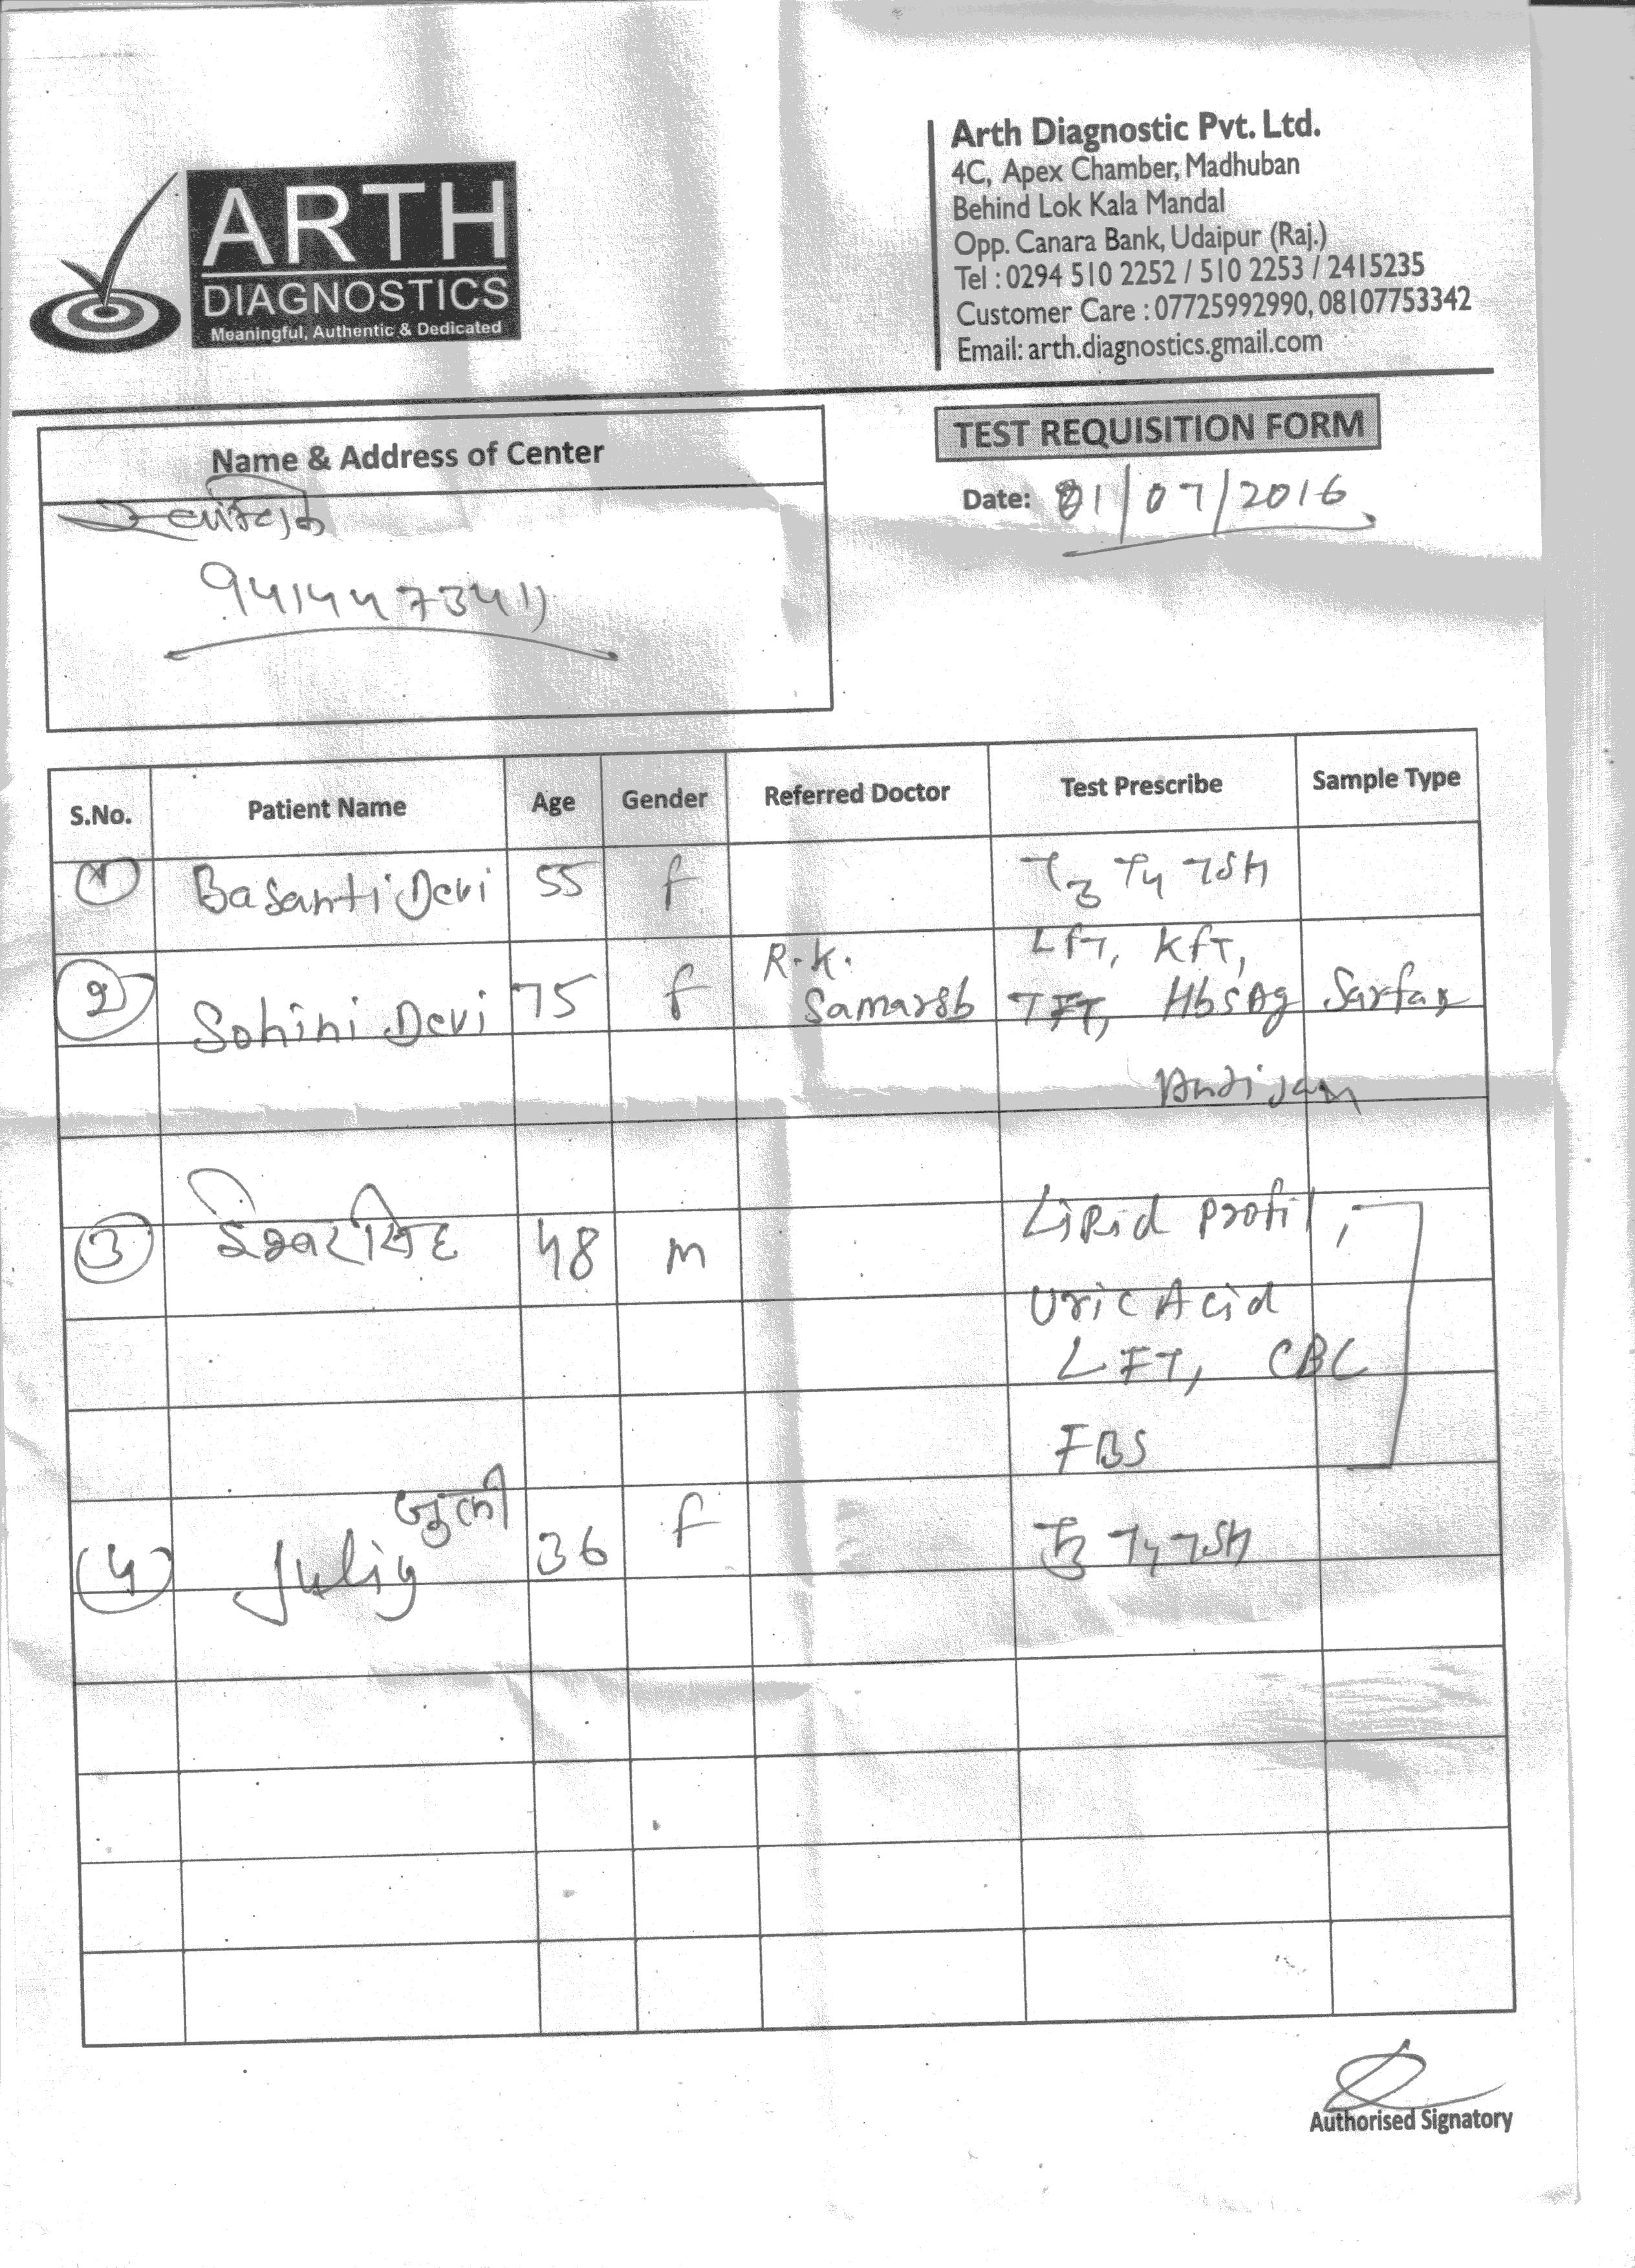 ARTH
DIAGNOSTICS
Meaningful, Authentic & Dedicated
Arth Diagnostic Pvt. Ltd.
4C, Apex Chamber, Madhuban
Behind Lok Kala Mandal
Opp. Canara Bank, Udaipur (Raj.)
Tel : 0294 510 2252 / 510 2253 / 2415235
Customer Care : 07725992990, 08107753342
Email: arth.diagnostics.gmail.com
Name & Address of Center
9414473411
TEST REQUISITION FORM
Date: 01/07/2016
S.No. Patient Name Age Gender Referred Doctor Test Prescribe Sample Type
1 Basanti Devi 55 f T3 T4 TSH
2 Sohini Devi 75 f R.K. LfT, KfT,
TFT, HbsAg
3 48 m Lipid profil,
Uric Acid
LFT, CBC
FBS
4 Juliy जुली 36 f T3 T4 TSH
Authorised Signatory